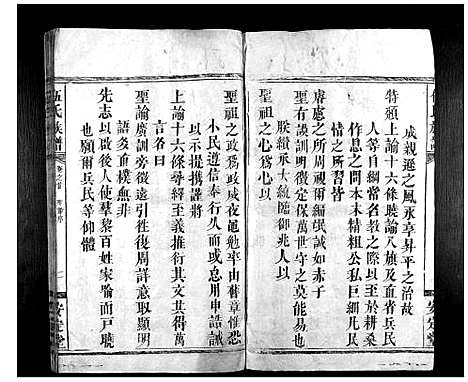 成親遜之風永享昇平之治故
特頒上諭十六條曉諭八旗及直省兵民
人等自綱常名教之際以至於耕桑
作息之間本末精粗公私巨細凡民
情之所習皆
睿慮之所周視爾編氓誠如赤子
聖有謨訓明徵定保萬世守之莫能易也
朕纘承大統臨御兆人以
聖祖之心為心以
聖祖之政為政夙夜黽勉率由舊章惟恐
小民遵信奉行久而或怠用申誥誡
以示提撕謹將
上諭十六條尋繹其義推衍其文共得萬
言名曰
聖諭廣訓旁徵遠引往復周詳意取顯明
語多直樸無非
先志以啟後人使羣黎百姓家喻而戶曉
也願爾兵民等仰體
伍氏族譜
卷之首
一
安定堂